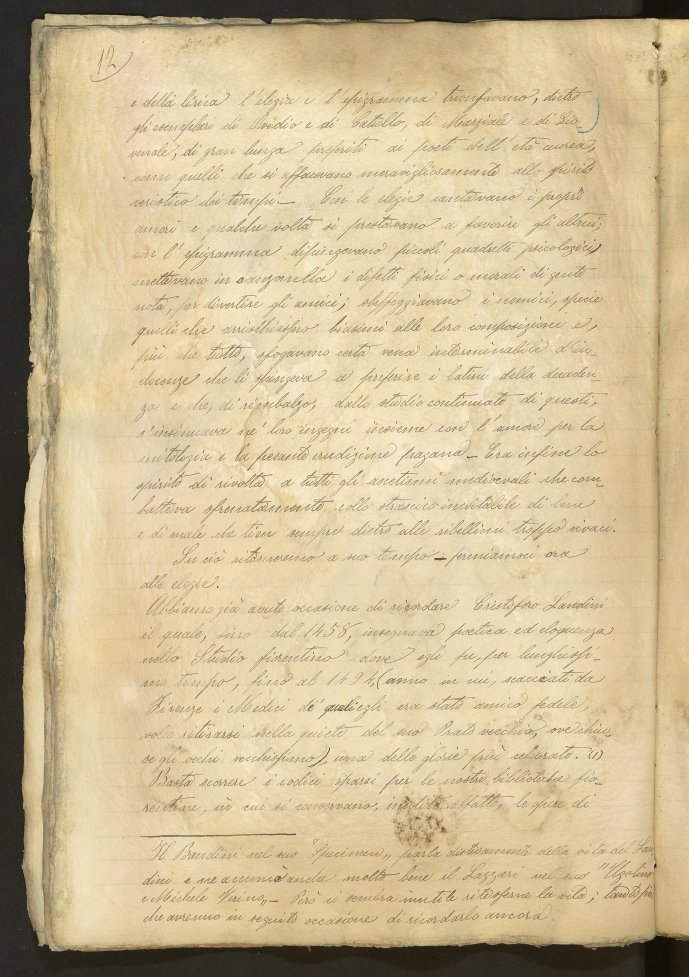 12
e della lirica l'elegia e l'epigramma trionfavano, dietro
gli esemplari di Ovidio e di Catullo, di Marziale e di Gio-
venale, di gran lunga preferiti ai poeti dell'età aurea,
come quelli che si affacevano meravigliosamente allo spirito
veristico dei tempi – Con le elegie cantavano i propri
amori e qualche volta si prestavano a favorire gli altrui;
con l'epigramma dipingevano piccoli quadretti psicologici,
mettevano in canzonella i difetti fisici o morali di gente
nota, per divertire gli amici; staffeggiavano i nemici, specie
quelli che arrischiassero biasimi alle loro composizioni e,
più che tutto, sfogavano certa vena interminabile d'in-
decenze che li spingeva a preferire i latini della decaden-
za e che, di rimbalzo, dallo studio continuato di questi,
s'insinuava ne' loro ingegni insieme con l'amore per la
mitologia e la pesante erudizione pagana – Era infine lo
spirito di rivolta a tutti gli ascetismi medioevali che com-
batteva sfrenatamente collo strascico inevitabile di bene
e di male che tien sempre dietro alle ribellioni troppo vivaci.
Su ciò ritorneremo a suo tempo – fermiamoci ora
alle elegie.
Abbiamo già avuto occasione di ricordare Cristoforo Landini
il quale, sino dal 1458, insegnava poetica ed eloquenza
nello Studio fiorentino dove egli fu, per lunghissi-
mo tempo, fino al 1494, (anno in cui, scacciati da
Firenze i Medici de' quali egli era stato amico fedele,
volle ritirarsi nella quiete del suo Prato vecchio, ove chiu-
se gli occhi vecchissimo), una delle glorie più celebrate. (1)
Basta scorrere i codici sparsi per le nostre biblioteche fio-
rentine, in cui si conservano, inedite affatto, le opere di
Il Bandini nel suo "Specimen" parla distesamente della vita del Lan-
dini e ne accenna anche molto bene il Lazzari nel suo "Ugolino
e Michele Verino" – Però ci sembra inutile ritesserne la vita; tanto più
che avremo in seguito occasione di ricordarlo ancora.